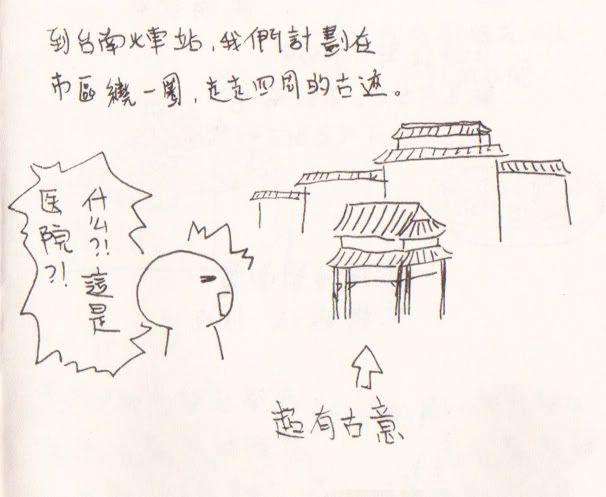 到台南火車站，我們計劃在
市區繞一圈，走走四周的古迹。
什么?!這是
医院?!
超有古意